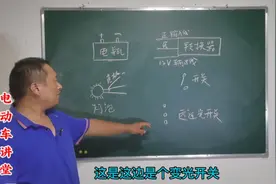 电机
转换器
开关
灯泡
远近光开关
电动车讲堂
这是这边是个变光开关